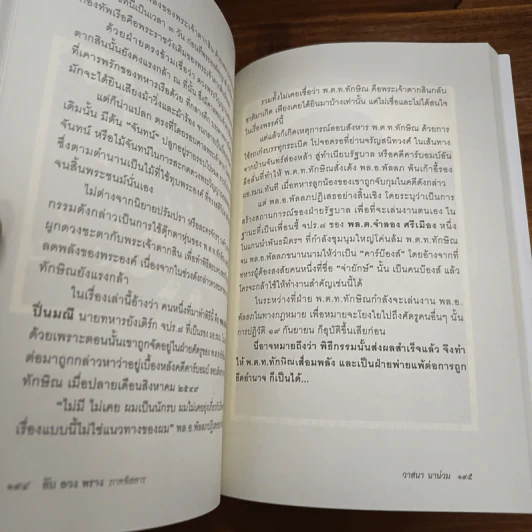 ของพระเจ้าตากสิน
เป็นเวลา ๗ วัน ก่อน
กองทัพเรือคือพระราชวังเดิมของพระเจ้าตาก
ด้วยฝ่ายตรงข้ามเชื่อว่า
ตากสินนั้นยังคงแรงกล้า ณ ที่นั้น
ที่เคารพรักของทหารเรือด้วย
มักจะได้ยินเสียงม้าวิ่งและม้าร้อง
แต่ก็น่าแปลก ตรงที่โดยรอบ
เดิมนั้น มีต้น “จันทน์” ปลูกอยู่
จันทน์ หรือไม้จันทน์ในการ
ซึ่งตามตำนานเป็นไม้ที่ใช้ทุบพระองค์
จนสิ้นพระชนม์นั่นเอง
ไม่ต่างจากนิยายปรัมปรา
กรรมดังกล่าวเป็นการใช้ตุ๊กตาหุ่นของ พ.ต.ท.
ผูกดวงชะตากับพระเจ้าตากสิน เพื่อทำพิธี
ลดพลังของพระองค์ เนื่องจากในช่วงดังกล่าว
ทักษิณยังแรงกล้า
ในเรื่องเล่านี้อ้างว่า คนหนึ่งที่มาทำพิธีนี้ คือ
ปิ่นมณี นายทหารยังเติร์ก จปร.๗ ที่เป็นรอง ผอ.
ด้วยเพราะตอนนั้นเขาถูกจัดอยู่ในฝ่ายศัตรูของ พ.ต.ท.
ต่อมาถูกกล่าวหาว่าอยู่เบื้องหลังคดีคาร์บอมบ์
ทักษิณ เมื่อปลายเดือนสิงหาคม ๒๕๔๙
“ไม่มี ไม่เคย ผมเป็นนักรบ ผมไม่เคยยุ่งเกี่ยวกับ
เรื่องแบบนี้ไม่ใช่แนวทางของผม” พล.อ.พัลลภปฏิเสธ
๑๙๔ ลับ ลวง พราง ภาคพิสดาร
รวมทั้งไม่เคยเชื่อว่า พ.ต.ท.ทักษิณ คือพระเจ้าตากสินกลับ
ชาติมาเกิด เพียงเคยได้ยินมาบ้างเท่านั้น แต่ไม่เชื่อและไม่ได้สนใจ
ในเรื่องพรรค์นี้
แต่แล้วก็เกิดเหตุการณ์ลอบสังหาร พ.ต.ท.ทักษิณ ด้วยการ
ใช้รถเก๋งบรรทุกระเบิด ไปจอดรอที่ย่านจรัญสนิทวงศ์ ในเส้นทาง
จากบ้านจันทร์ส่องหล้า สู่ทำเนียบรัฐบาล หรือคดีคาร์บอมบ์อัน
ลือลั่นที่ทำให้ พ.ต.ท.ทักษิณสั่งเด้ง พล.อ.พัลลภ พ้นเก้าอี้รอง
ผอ.รมน.ทันที เมื่อทหารลูกน้องของเขาถูกจับกุมในคดีดังกล่าว
แต่ พล.อ.พัลลภปฏิเสธอย่างสิ้นเชิง โดยระบุว่าเป็นการ
สร้างสถานการณ์ของฝ่ายรัฐบาล เพื่อที่จะเล่นงานตนเอง ใน
ฐานะที่เป็นเพื่อนซี้ จปร.๗ ของ พล.ต.จำลอง ศรีเมือง หนึ่ง
ในแกนนำพันธมิตรฯ ที่กำลังชุมนุมใหญ่โค่นล้ม พ.ต.ท.ทักษิณ
จน พล.อ.พัลลภขนานนามให้ว่าเป็น “คาร์บ๊องส์” โดยอ้างจากที่
ทหารผู้ต้องสงสัยคนหนึ่งที่ชื่อ “จ่ายักษ์” นั้น เป็นคนบ๊องส์ แล้ว
ใครจะกล้าใช้ให้ทำงานสำคัญเช่นนี้ได้
ในระหว่างที่ฝ่าย พ.ต.ท.ทักษิณกำลังจะเล่นงาน พล.อ.
พัลลภในทางกฎหมาย เพื่อหมายจะโยงใยไปถึงศัตรูคนอื่นๆ นั้น
การปฏิวัติ ๑๙ กันยายน ก็อุบัติขึ้นเสียก่อน
นี่อาจหมายถึงว่า พิธีกรรมนั้นส่งผลสำเร็จแล้ว จึงทำ
ให้ พ.ต.ท.ทักษิณเสื่อมพลัง และเป็นฝ่ายพ่ายแพ้ต่อการถูก
ยึดอำนาจ ก็เป็นได้...
วาสนา นาน่วม ๑๙๕